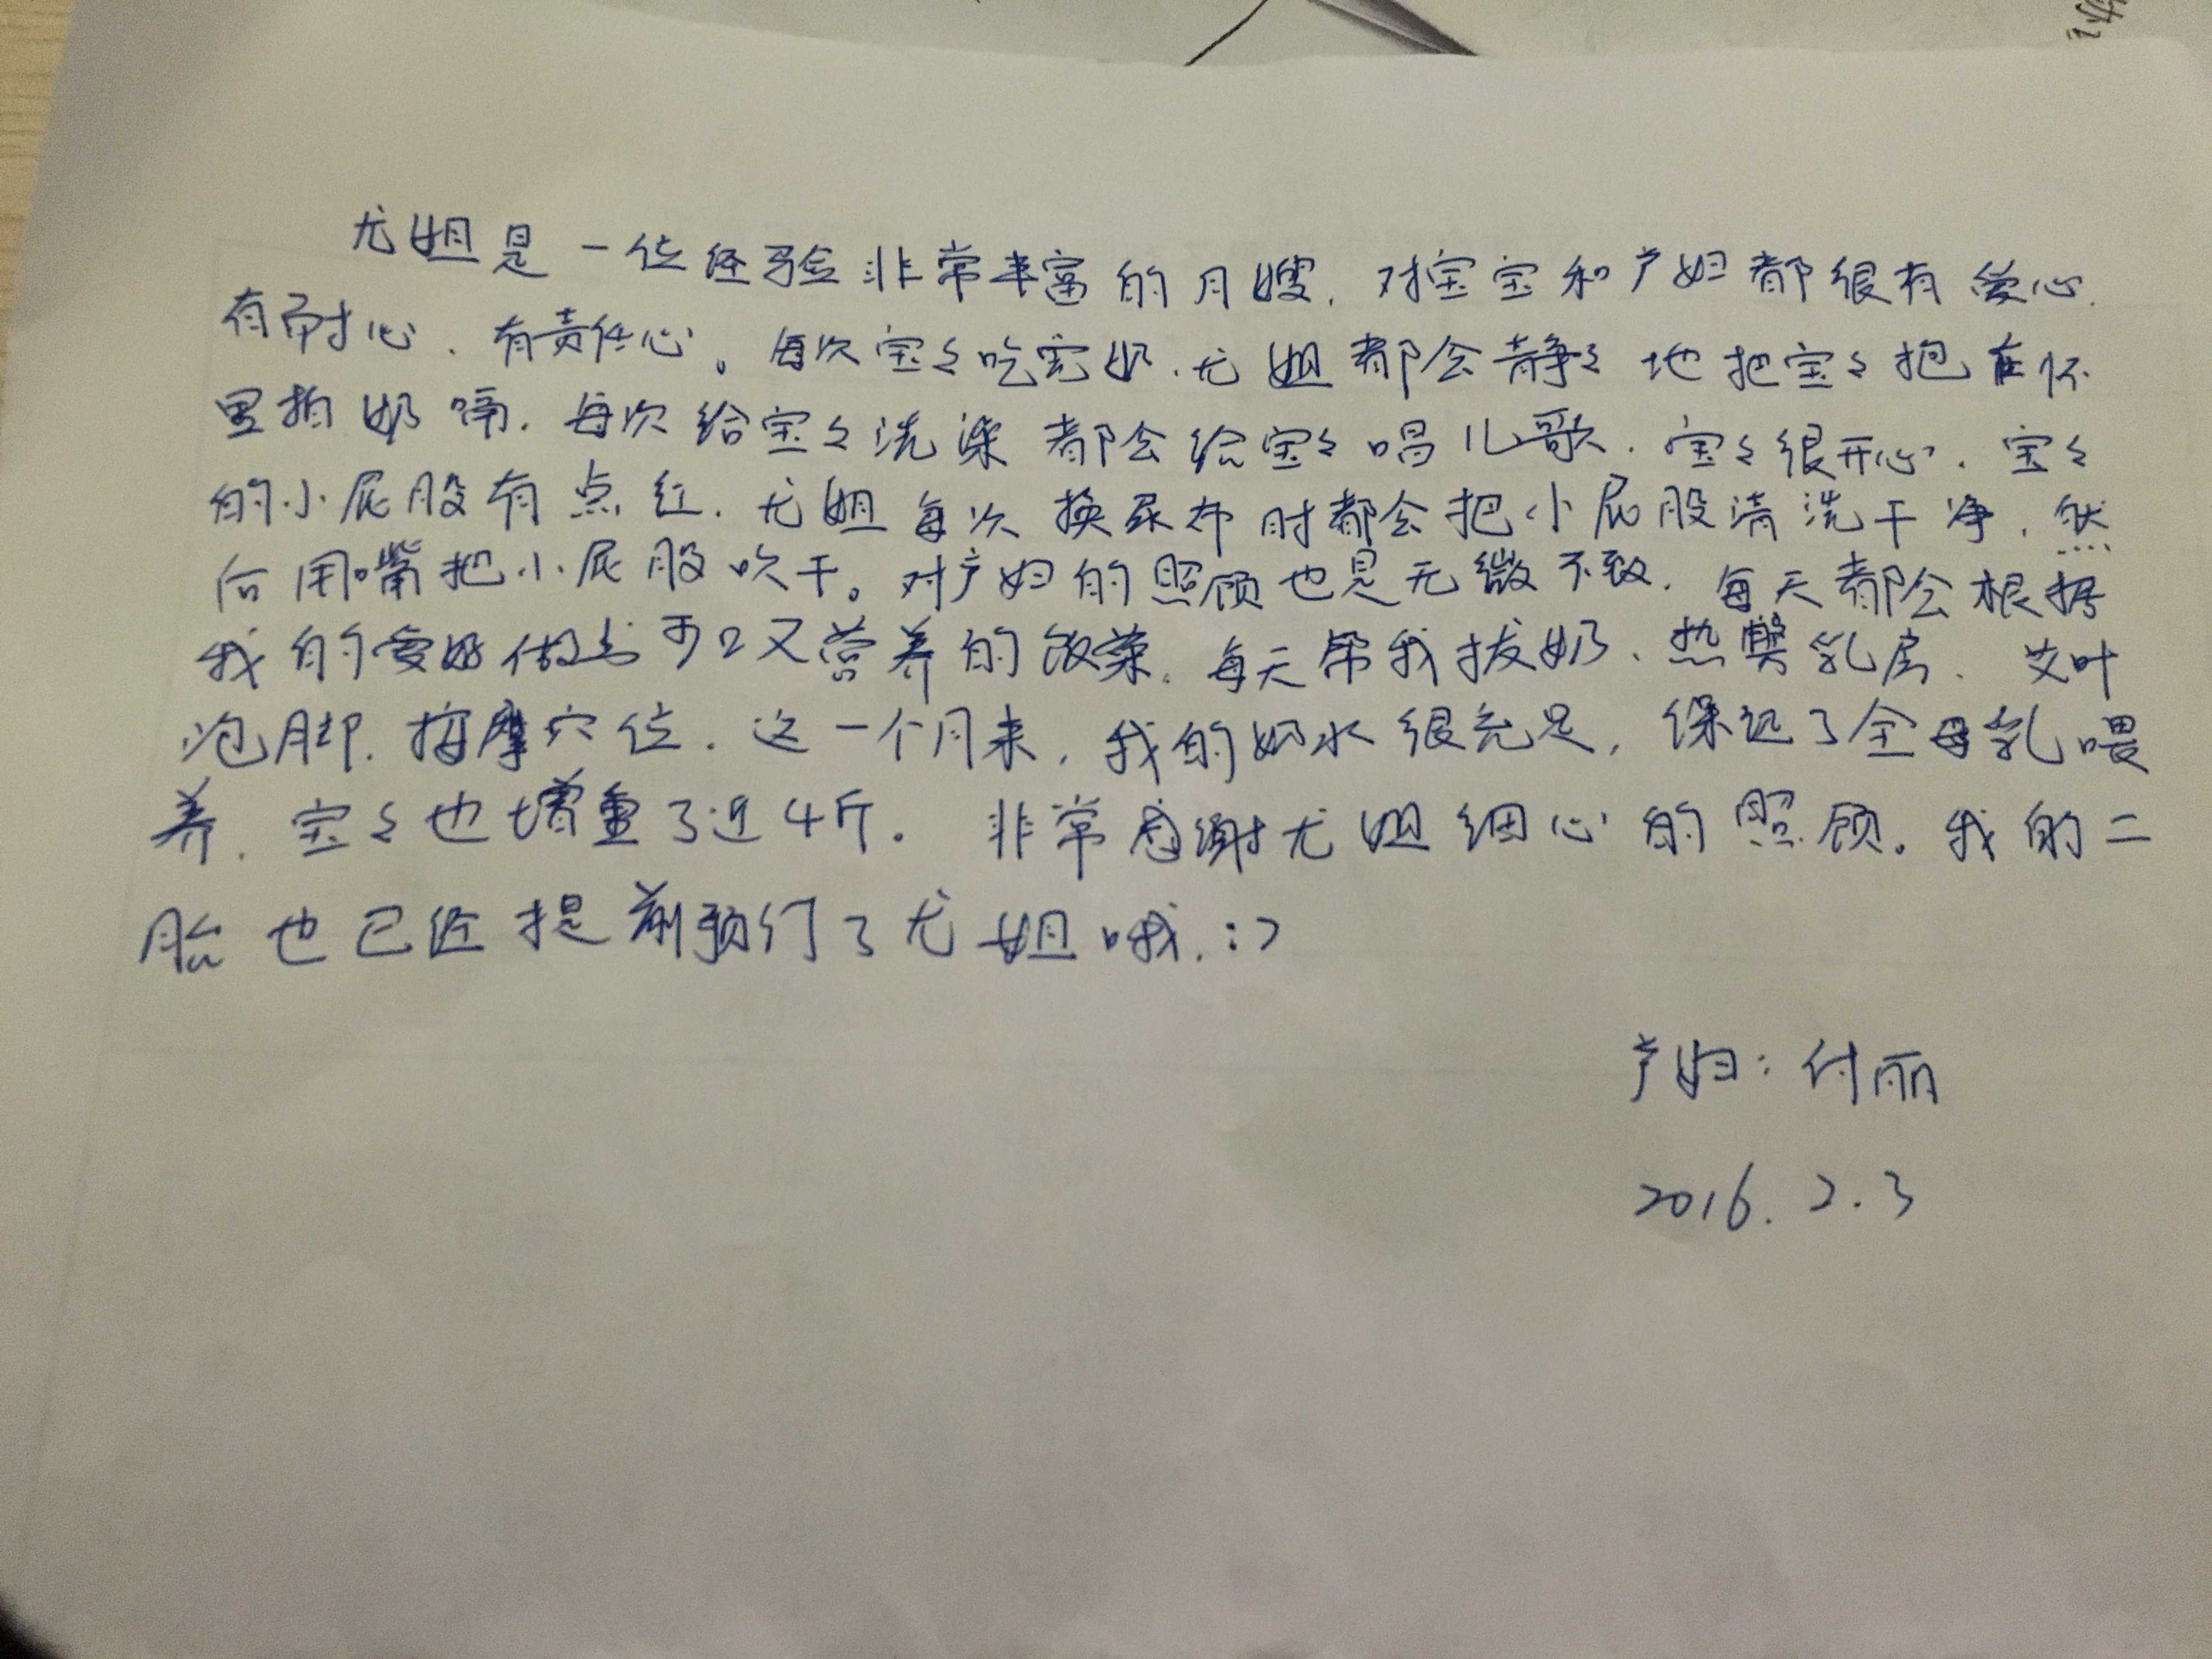 尤姐是一位经验非常丰富的月嫂，对宝宝和产妇都很有爱心、
有耐心、有责任心。每次宝宝吃完奶，尤姐都会静静地把宝宝抱在怀
里拍奶嗝，每次给宝宝洗澡都会给宝宝唱儿歌，宝宝很开心，宝宝
的小屁股有点红，尤姐每次换尿布时都会把小屁股清洗干净，然
后用嘴把小屁股吹干。对产妇的照顾也是无微不致，每天都会根据
我的爱好做出可口又营养的饭菜，每天帮我拔奶、热熨乳房、艾叶
泡脚、按摩穴位，这一个月来，我的奶水很充足，保证了全母乳喂
养，宝宝也增重了近4斤。非常感谢尤姐细心的照顾。我的二
胎也已经提前预们了尤姐哦，:>
产妇：付丽
2016.2.3